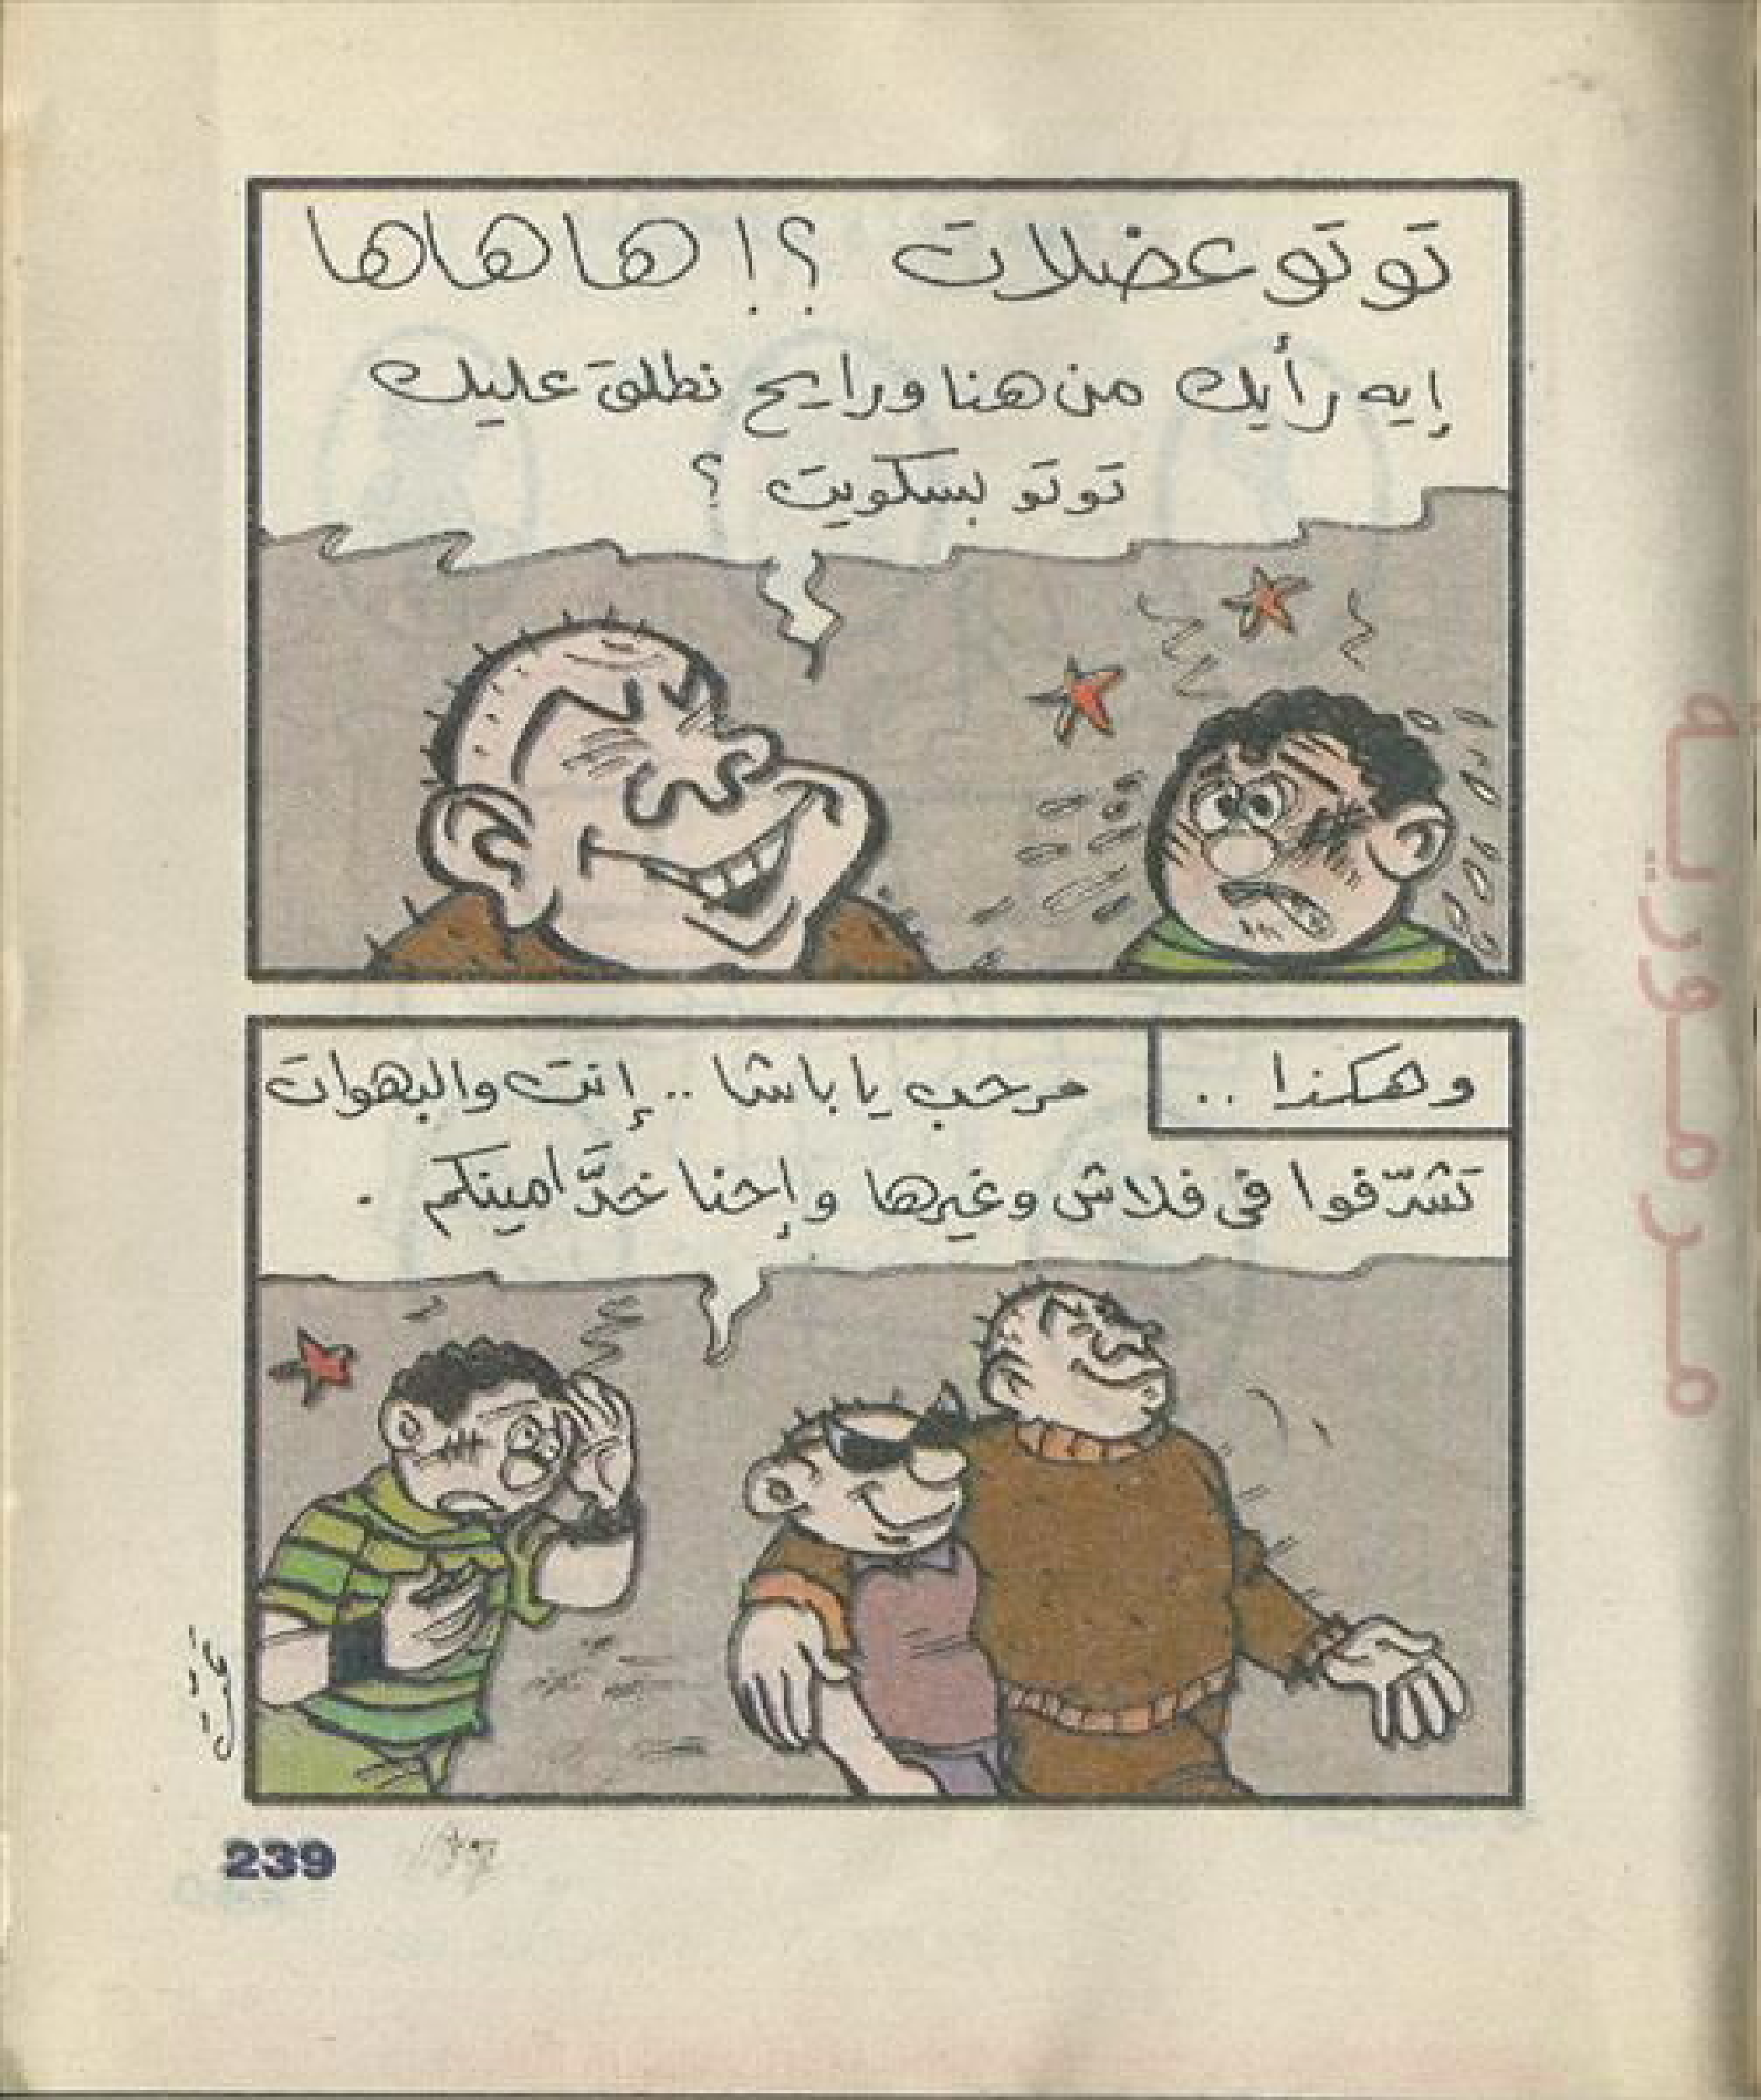 تَوتَو عضلاتَ ؟! هاهاها
إيه رأيك من هنا ورايح نطلقَ عليك
تَوتَو بسكويتَ ؟
وهكذا ..
مرحب يا باشا .. إنتَ والبهواتَ
تَشرّفوا في فلاش وغيرها وإحنا خدَّامينكم .
239
مرمورية